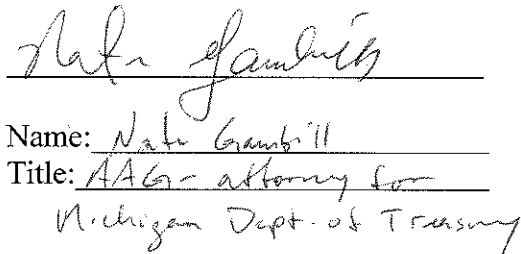 Nate Gambill
Name: Nate Gambill
Title: AAG - attorney for
Michigan Dept. of Treasury